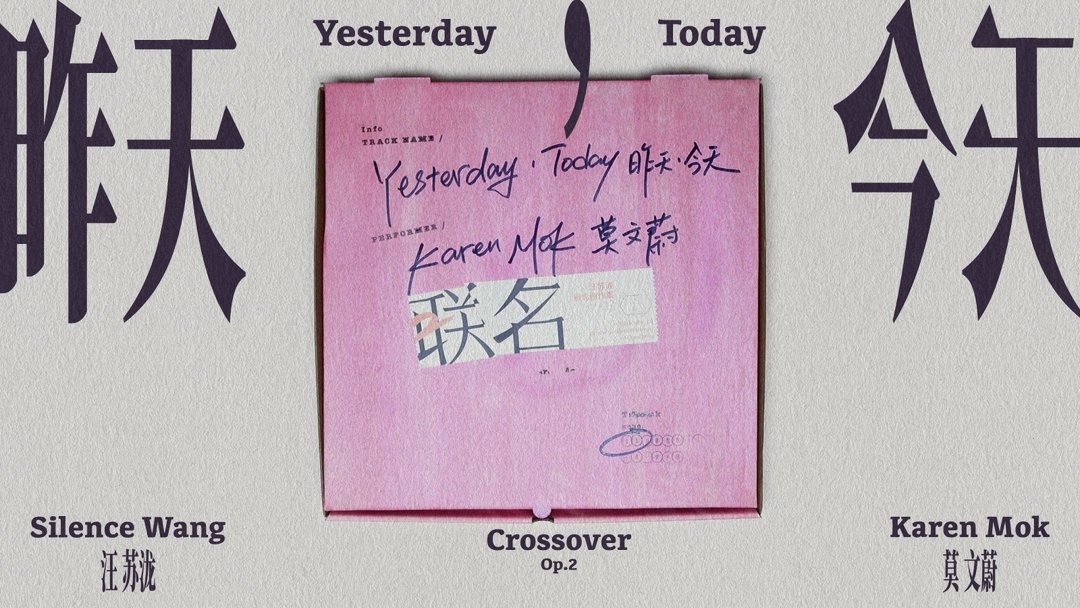 Yesterday , Today
昨天
今天
Info
TRACK NAME /
Yesterday . Today 昨天·今天
PERFORMER /
Karen Mok 莫文蔚
联名
Silence Wang
汪苏泷
Crossover
Op.2
Karen Mok
莫文蔚